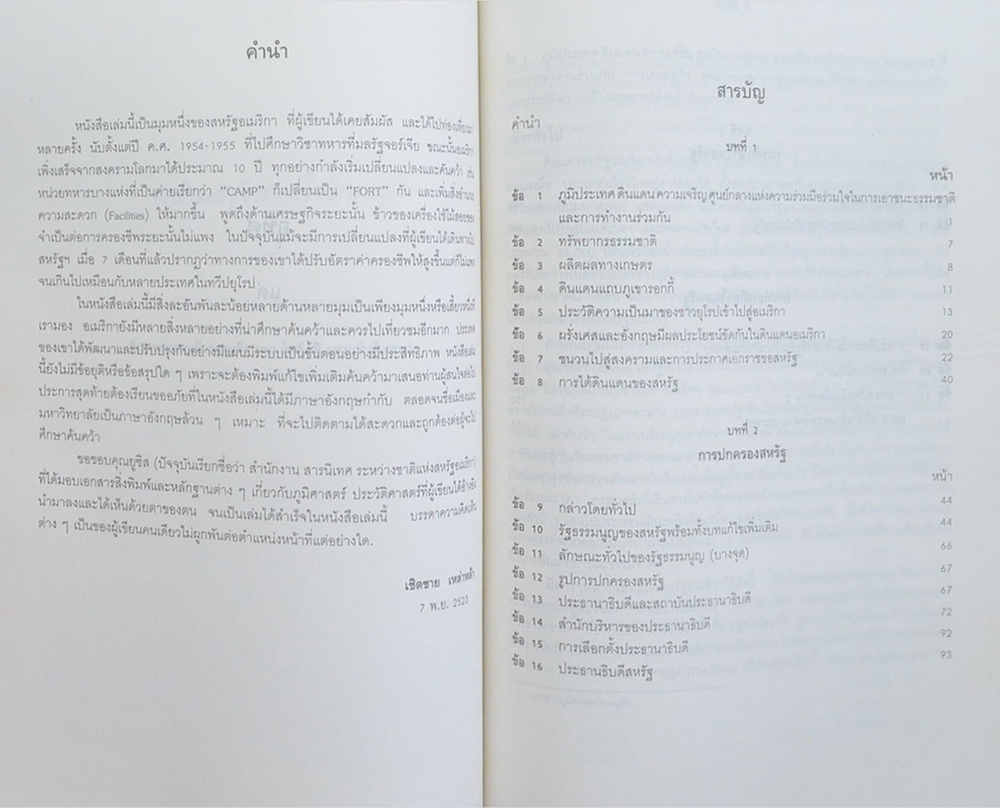 คำนำ
หนังสือเล่มนี้เป็นมุมหนึ่งของสหรัฐอเมริกา ที่ผู้เขียนได้เคยสัมผัส และได้ไปท่องเที่ยวมา
หลายครั้ง นับตั้งแต่ปี ค.ศ. 1954-1955 ที่ไปศึกษาวิชาทหารที่มลรัฐจอร์เจีย ขณะนั้นอเมริกา
เพิ่งเสร็จจากสงครามโลกมาได้ประมาณ 10 ปี ทุกอย่างกำลังเริ่มเปลี่ยนแปลงและค้นคว้า เช่น
หน่วยทหารบางแห่งที่เป็นค่ายเรียกว่า "CAMP" ก็เปลี่ยนเป็น "FORT" กัน และเพิ่มสิ่งอำนวย
ความสะดวก (Facilities) ให้มากขึ้น พูดถึงด้านเศรษฐกิจระยะนั้น ข้าวของเครื่องใช้ไม้สอยของ
จำเป็นต่อการครองชีพระยะนั้นไม่แพง ในปัจจุบันแม้จะมีการเปลี่ยนแปลงที่ผู้เขียนได้เดินทางไป
สหรัฐฯ เมื่อ 7 เดือนที่แล้วปรากฏว่าทางการของเขาได้ปรับอัตราค่าครองชีพให้สูงขึ้นแต่ก็ไม่แพง
จนเกินไปเหมือนกับหลายประเทศในทวีปยุโรป
ในหนังสือเล่มนี้มีสิ่งละอันพันละน้อยหลายด้านหลายมุมเป็นเพียงมุมหนึ่งหรือเสี้ยวหนึ่งที่
เรามอง อเมริกายังมีหลายสิ่งหลายอย่างที่น่าศึกษาค้นคว้าและควรไปเที่ยวชมอีกมาก ประเทศ
ของเขาได้พัฒนาและปรับปรุงกันอย่างมีแผนมีระบบเป็นขั้นตอนอย่างมีประสิทธิภาพ หนังสือเล่ม
นี้ยังไม่มีข้อยุติหรือข้อสรุปใด ๆ เพราะจะต้องพิมพ์แก้ไขเพิ่มเติมค้นคว้ามาเสนอท่านผู้สนใจต่อไป
ประการสุดท้ายต้องเรียนขออภัยที่ในหนังสือเล่มนี้ได้มีภาษาอังกฤษกำกับ ตลอดจนชื่อเมืองและ
มหาวิทยาลัยเป็นภาษาอังกฤษล้วน ๆ เหมาะ ที่จะไปติดตามได้สะดวกและถูกต้องต่อผู้จะไป
ศึกษาค้นคว้า
ขอขอบคุณยูซิส (ปัจจุบันเรียกชื่อว่า สำนักงาน สารนิเทศ ระหว่างชาติแห่งสหรัฐอเมริกา)
ที่ได้มอบเอกสารสิ่งพิมพ์และหลักฐานต่าง ๆ เกี่ยวกับภูมิศาสตร์ ประวัติศาสตร์ที่ผู้เขียนได้อ้างอิง
นำมาลงและได้เห็นด้วยตาของตน จนเป็นเล่มได้สำเร็จในหนังสือเล่มนี้ บรรดาความคิดเห็น
ต่าง ๆ เป็นของผู้เขียนคนเดียวไม่ผูกพันต่อตำแหน่งหน้าที่แต่อย่างใด.
เชิดชาย เหล่าหล้า
7 พ.ย. 2523
สารบัญ
คำนำ
บทที่ 1
หน้า
ข้อ 1 ภูมิประเทศ ดินแดน ความเจริญ ศูนย์กลางแห่งความร่วมมือร่วมใจในการเอาชนะธรรมชาติ
และการทำงานร่วมกัน 1
ข้อ 2 ทรัพยากรธรรมชาติ 7
ข้อ 3 ผลิตผลทางเกษตร 8
ข้อ 4 ดินแดนแถบภูเขารอกกี้ 11
ข้อ 5 ประวัติความเป็นมาของชาวยุโรปเข้าไปสู่อเมริกา 13
ข้อ 6 ฝรั่งเศสและอังกฤษมีผลประโยชน์ขัดกันในดินแดนอเมริกา 20
ข้อ 7 ชนวนไปสู่สงครามและการประกาศเอกราชของสหรัฐ 22
ข้อ 8 การได้ดินแดนของสหรัฐ 40
บทที่ 2
การปกครองสหรัฐ
หน้า
ข้อ 9 กล่าวโดยทั่วไป 44
ข้อ 10 รัฐธรรมนูญของสหรัฐพร้อมทั้งบทแก้ไขเพิ่มเติม 44
ข้อ 11 ลักษณะทั่วไปของรัฐธรรมนูญ (บางจุด) 66
ข้อ 12 รูปการปกครองสหรัฐ 67
ข้อ 13 ประธานาธิบดีและสถาบันประธานาธิบดี 67
ข้อ 14 สำนักบริหารของประธานาธิบดี 72
ข้อ 15 การเลือกตั้งประธานาธิบดี 92
ข้อ 16 ประธานธิบดีสหรัฐ 93